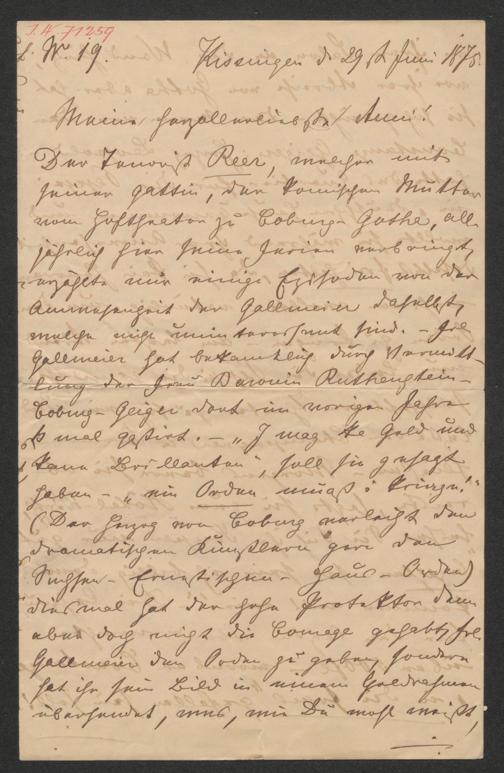 I.N. 71259
Nr. 19. Kissingen d. 29st Juni 1875.
Meine herzallerliebste Anni!
Der Tenorist Reer, welcher mit
seiner Gattin, der komischen Mutter
vom Hoftheater zu Coburg-Gotha, all-
jährlich hier seine Ferien verbringt,
erzählte mir einige Episoden von der
Anwesenheit der Gallmeier daselbst,
welche nicht uninteressant sind. – Frl
Gallmeier hat bekanntlich durch Vermitt-
lung der Frau Baronin Ruttenstein-
Coburg-Geiger dort im vorigen Jahre
mal gastirt. – "I mag ka Geld und
kane Brillanten", soll sie gesagt
haben – "ein Orden muaß i kriegn!"
(Der Herzog von Coburg verleiht den
dramatischen Künstlern gern den
Sachsen-Ernestischen-Haus-Orden)
diesmal hat der hohe Protektor denn
aber doch nicht die Courage gehabt, Frl
Gallmeier den Orden zu geben, sondern
hat ihr sein Bild in einem Goldrahmen
übersendet, was, wie Du wohl weißt,